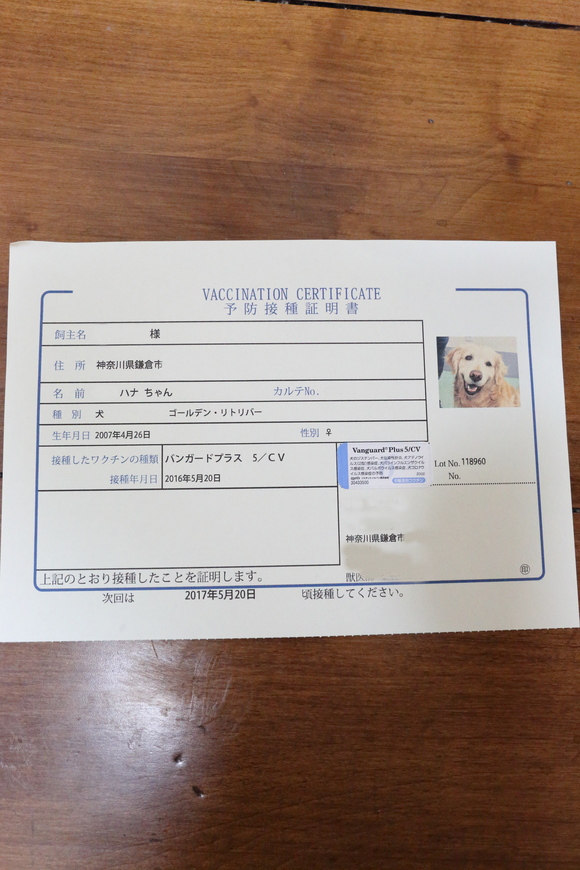 VACCINATION CERTIFICATE
予防接種証明書
飼主名 様
住 所 神奈川県鎌倉市
名 前 ハナ ちゃん カルテNo.
種 別 犬 ゴールデン・リトリバー
生年月日 2007年4月26日 性別 ♀
接種したワクチンの種類 バンガードプラス 5/CV
接種年月日 2016年5月20日
Vanguard® Plus 5/CV
Lot No. 118960
No.
神奈川県鎌倉市
獣医
上記のとおり接種したことを証明します。
次回は 2017年5月20日 頃接種してください。